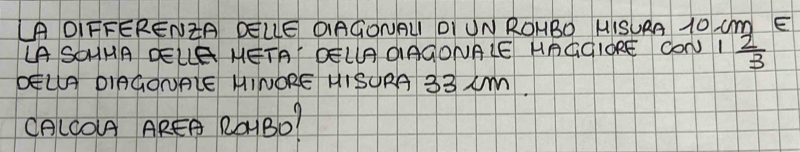 LA DIFFERENZA DELLE DIAGONALI DI UN ROMBO MISURA 10 cm E
LA SOMMA DELLA META' DELLA DIAGONALE MAGGIORE CON I 2/3
DELLA DIAGONALE MINORE MISURA 33 cm.
CALCOLA AREA ROMBO?